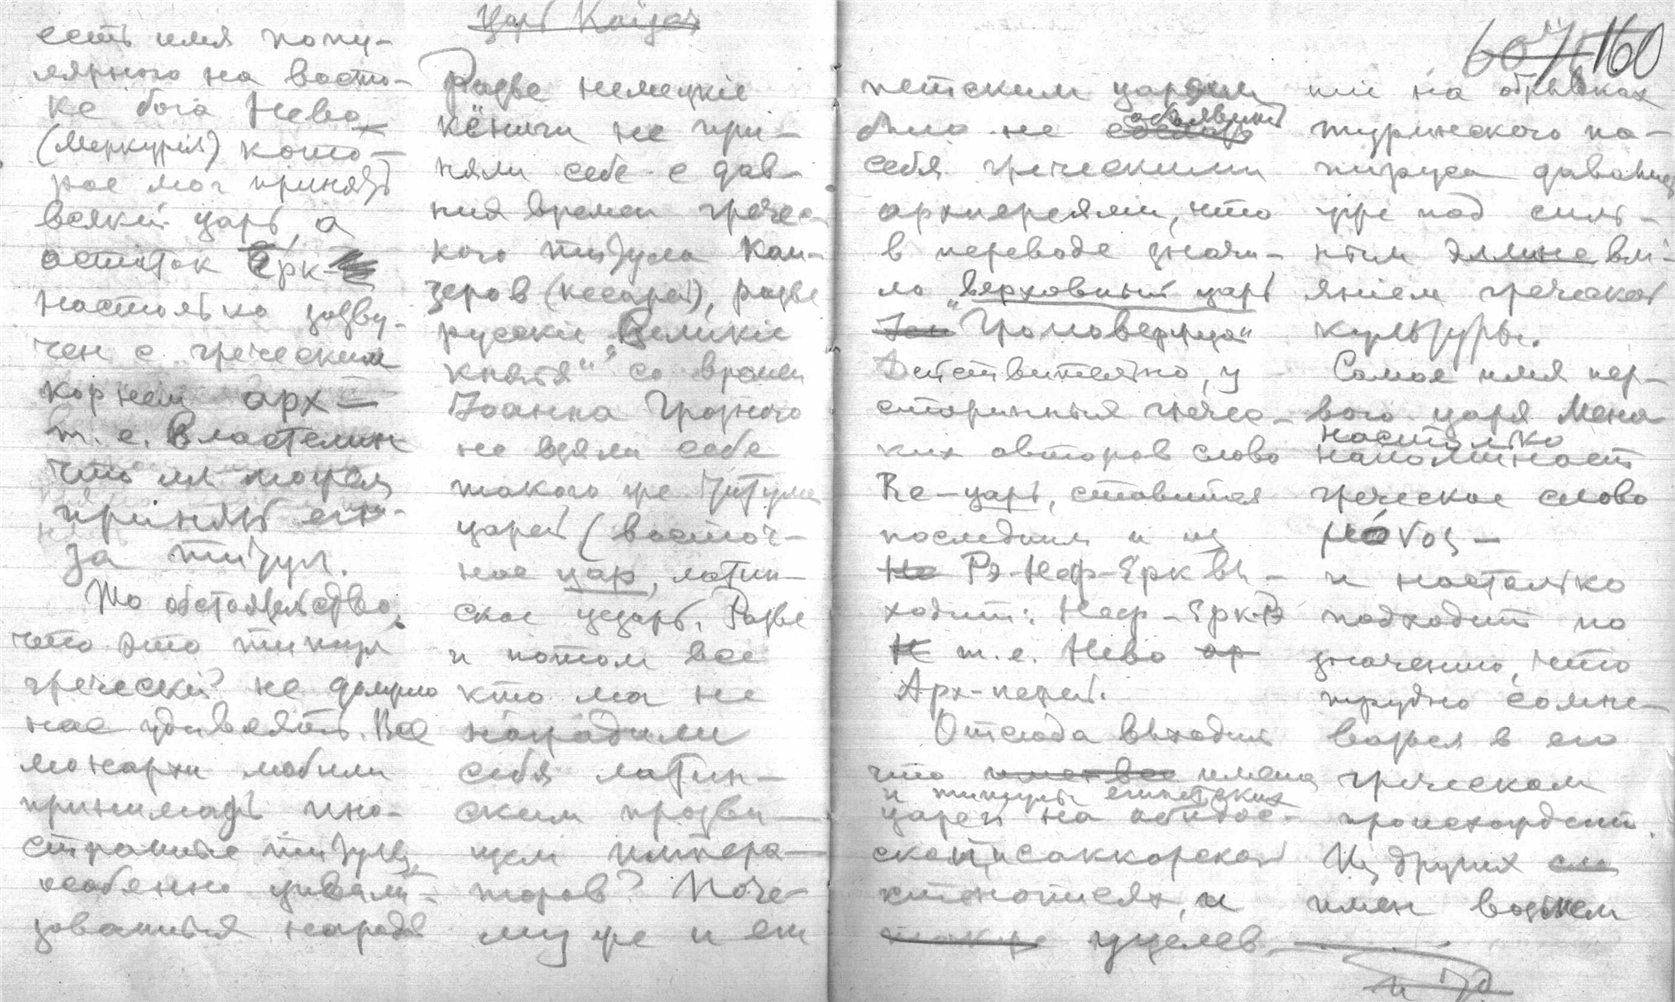 есть имя попу-
лярного на восто-
ке бога Нево
(Меркурия) кото-
рое мог принять
всякий царь, а
остаток Ерк-
настолько созву-
чен с греческим
корнем арх —
т. е. властелин
что мы можем
принять его
за титул.
То обстоятельство,
что это титул
греческий не должно
нас удивлять. Все
монархи любили
принимать ино-
странные титулы,
особенно цивили-
зованных народов
царь Кайзер
Разве немецкие
кёниги не при-
няли себе с дав-
них времен гречес-
кого титула кай-
зеров (кесарей), разве
русские „Великие
князья“ со времен
Иоанна Грозного
не взяли себе
такого же титула
царей (восточ-
ное цар, латин-
ское цезарь. Разве
и потом все
кто мог не
наградили
себя латин-
ским прозви-
щем импера-
торов? Поче-
му же и еги
петским царям
было не объявить
себя греческими
архиереями, что
в переводе значи-
ло „верховный царь
Громовержца“
Действительно, у
старинных гречес-
ких авторов слово
Re-царь, ставится
последним и из
Рэ-Неф-Ерк вы-
ходит: Неф-Ерк-Рэ
т. е. Нево
Арх-иерей.
Отсюда выходит
что имена
и титулы египетских
царей на абидос-
ской и саккарской
стенописях, и
уцелев-
60 7 160
шие на обрывках
туринского па-
пируса даваны
уже под силь-
ным эллине вли-
янием греческой
культуры.
Самое имя пер-
вого царя Мена
настолько
напоминает
греческое слово
μόνος —
и настолько
подходит по
значению, что
трудно сомне-
ваться в его
греческом
происхождении.
Из других
имен возьмем